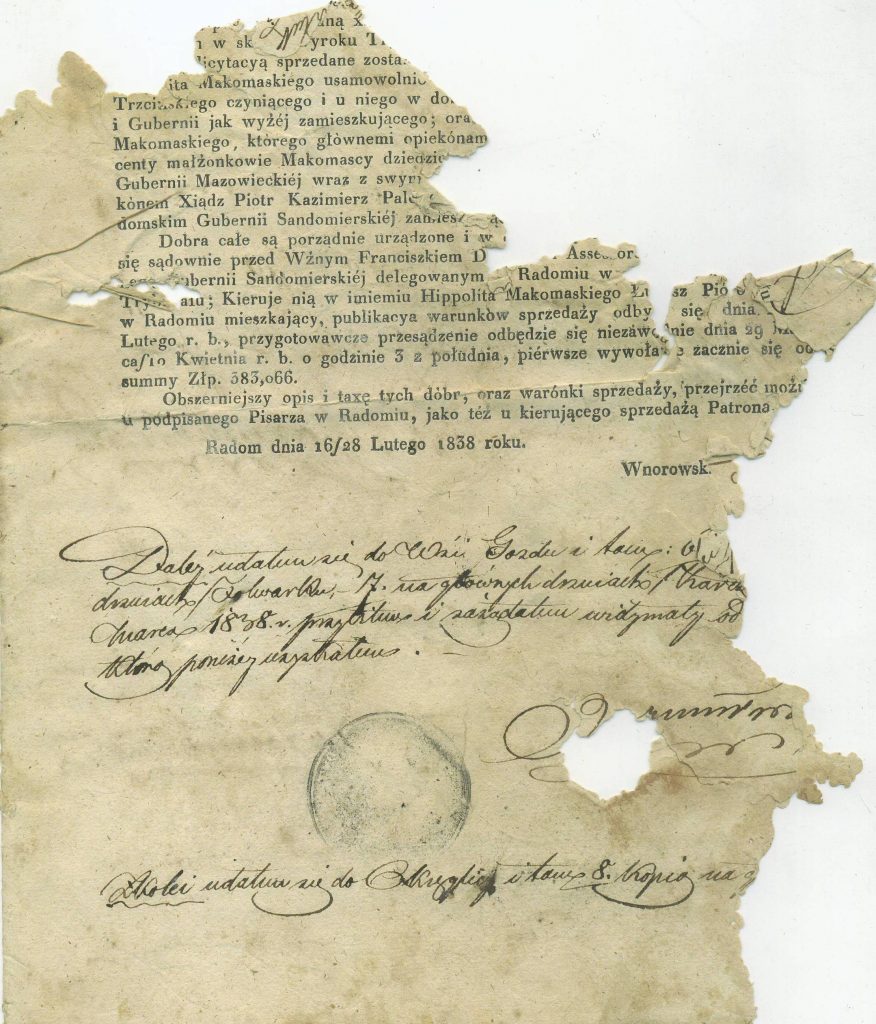 ną x
w sk yroku T
licytacyą sprzedane zosta
ita Makomaskiego usamowolnio
Trzcińskiego czyniącego i u niego w do
i Gubernii jak wyźéj zamieszkującego; ora
Makomaskiego, którego głównemi opiekónam
centy małżonkowie Makomascy dziedzic
Gubernii Mazowieckiéj wraz z swym
kònem Xiądz Piotr Kazimierz Pal
domskim Gubernii Sandomierskiéj zamies
Dobra całe są porządnie urządzone i w
się sądownie przed Wźnym Franciszkiem D Assessor
Gubernii Sandomierskiéj delegowanym Radomiu w
Kieruje nią w imiemiu Hippolita Makomaskiego Piò
w Radomiu mieszkający, publikacya warunków sprzedaży odby się dnia
Lutego r. b., przygotowawcze przesądzenie odbędzie się niezawodnie dnia 29 M
ca/10 Kwietnia r. b. o godzinie 3 z południa, piérwsze wywołanie zacznie się od
summy Złp. 383,066.
Obszerniejszy opis i taxę tych dóbr, oraz warónki sprzedaży, przejrzéć możn
u podpisanego Pisarza w Radomiu, jako téż u kierującego sprzedażą Patrona
Radom dnia 16/28 Lutego 1838 roku.
Wnorowsk
Daléj udałem się do Wsii Gozdu i tam:
drzwiach/Folwarku, – 7. na głównych drzwiach/
Marca 1838. r. przybiłem i zażądałem widymaty od
którą poniżéj uzyskałem.
Zkolei udałem się do i tam 8. kopią na